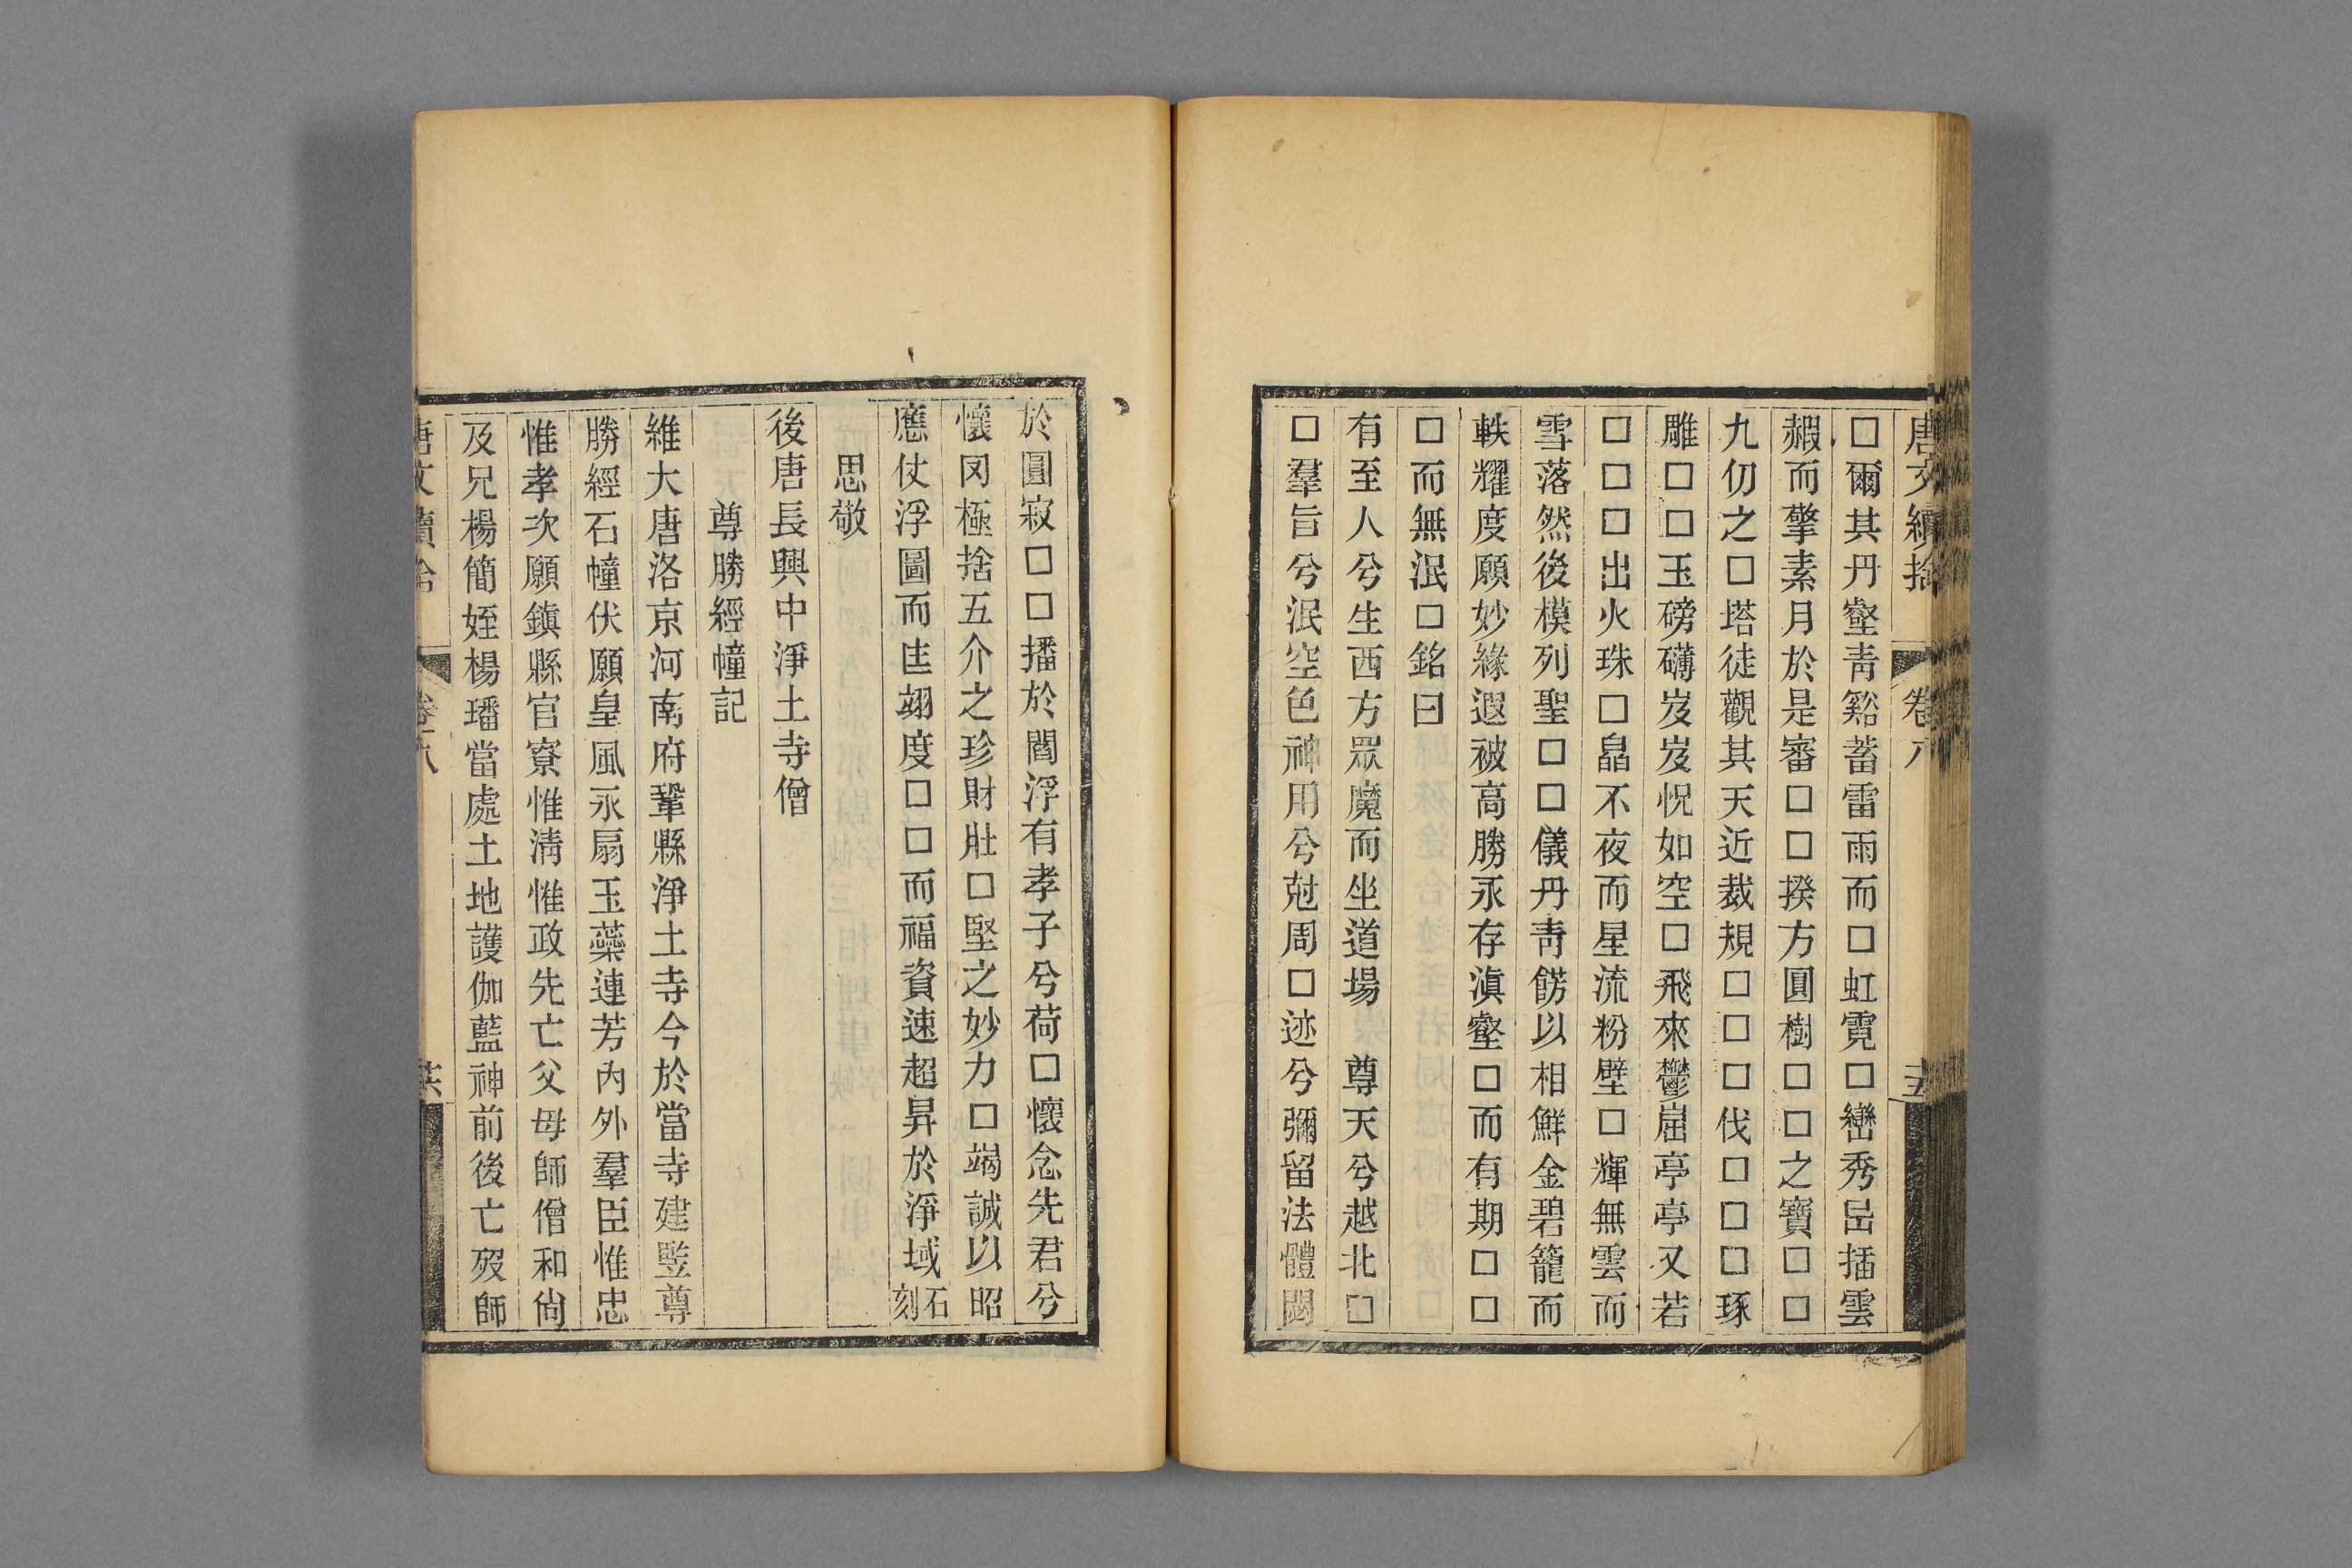 唐文續拾 卷八 十五
□爾其丹壑靑谿蓄雷雨而□虹霓□巒秀嵒插雲
赮而擎素月於是審□□揆方圓樹□□之寶□□
九仞之□塔徒觀其天近裁規□□□伐□□□琢
雕□□玉磅礴岌岌怳如空□飛來鬱崫亭亭又若
□□□出火珠□皛不夜而星流粉壁□輝無雲而
雪落然後模列聖□□儀丹靑餝以相鮮金碧籠而
軼耀度願妙緣遐被高勝永存滇壑□而有期□□
□而無泯□銘曰
有至人兮生西方眾魔而坐道場　尊天兮越北□
□羣旨兮泯空色神用兮兙周□迹兮彌留法體闋
於圓寂□□播於閻浮有孝子兮荷□懷念先君兮
懷罔極捨五介之珍財壯□堅之妙力□竭誠以昭
應仗浮圖而㞷翊度□□而福資速超昇於淨域石刻
思敬
後唐長興中淨土寺僧
尊勝經幢記
維大唐洛京河南府鞏縣淨土寺今於當寺建豎尊
勝經石幢伏願皇風永扇玉蘂連芳內外羣臣惟忠
惟孝次願鎮縣官寮惟清惟政先亡父母師僧和尙
及兄楊簡姪楊璠當處土地護伽藍神前後亡歿師
唐文續拾 卷八 十六